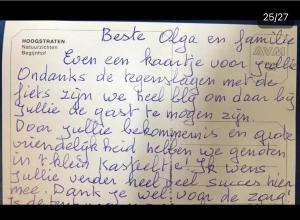 25/27
Beste Olga en familie
HOOGSTRATEN
Natuurzichten
Begijnhof
Even een kaartje voor jullie
Ondanks de tegenslagen met de
fiets zijn we heel blij om daar bij
jullie de gast te mogen zijn.
Door jullie bekommernis en grote
vriendelijkheid hebben we genoten
in 't klein kasteeltje! Ik wens
jullie verder heel veel succes hier
mee. Dank je wel voor de zorg!